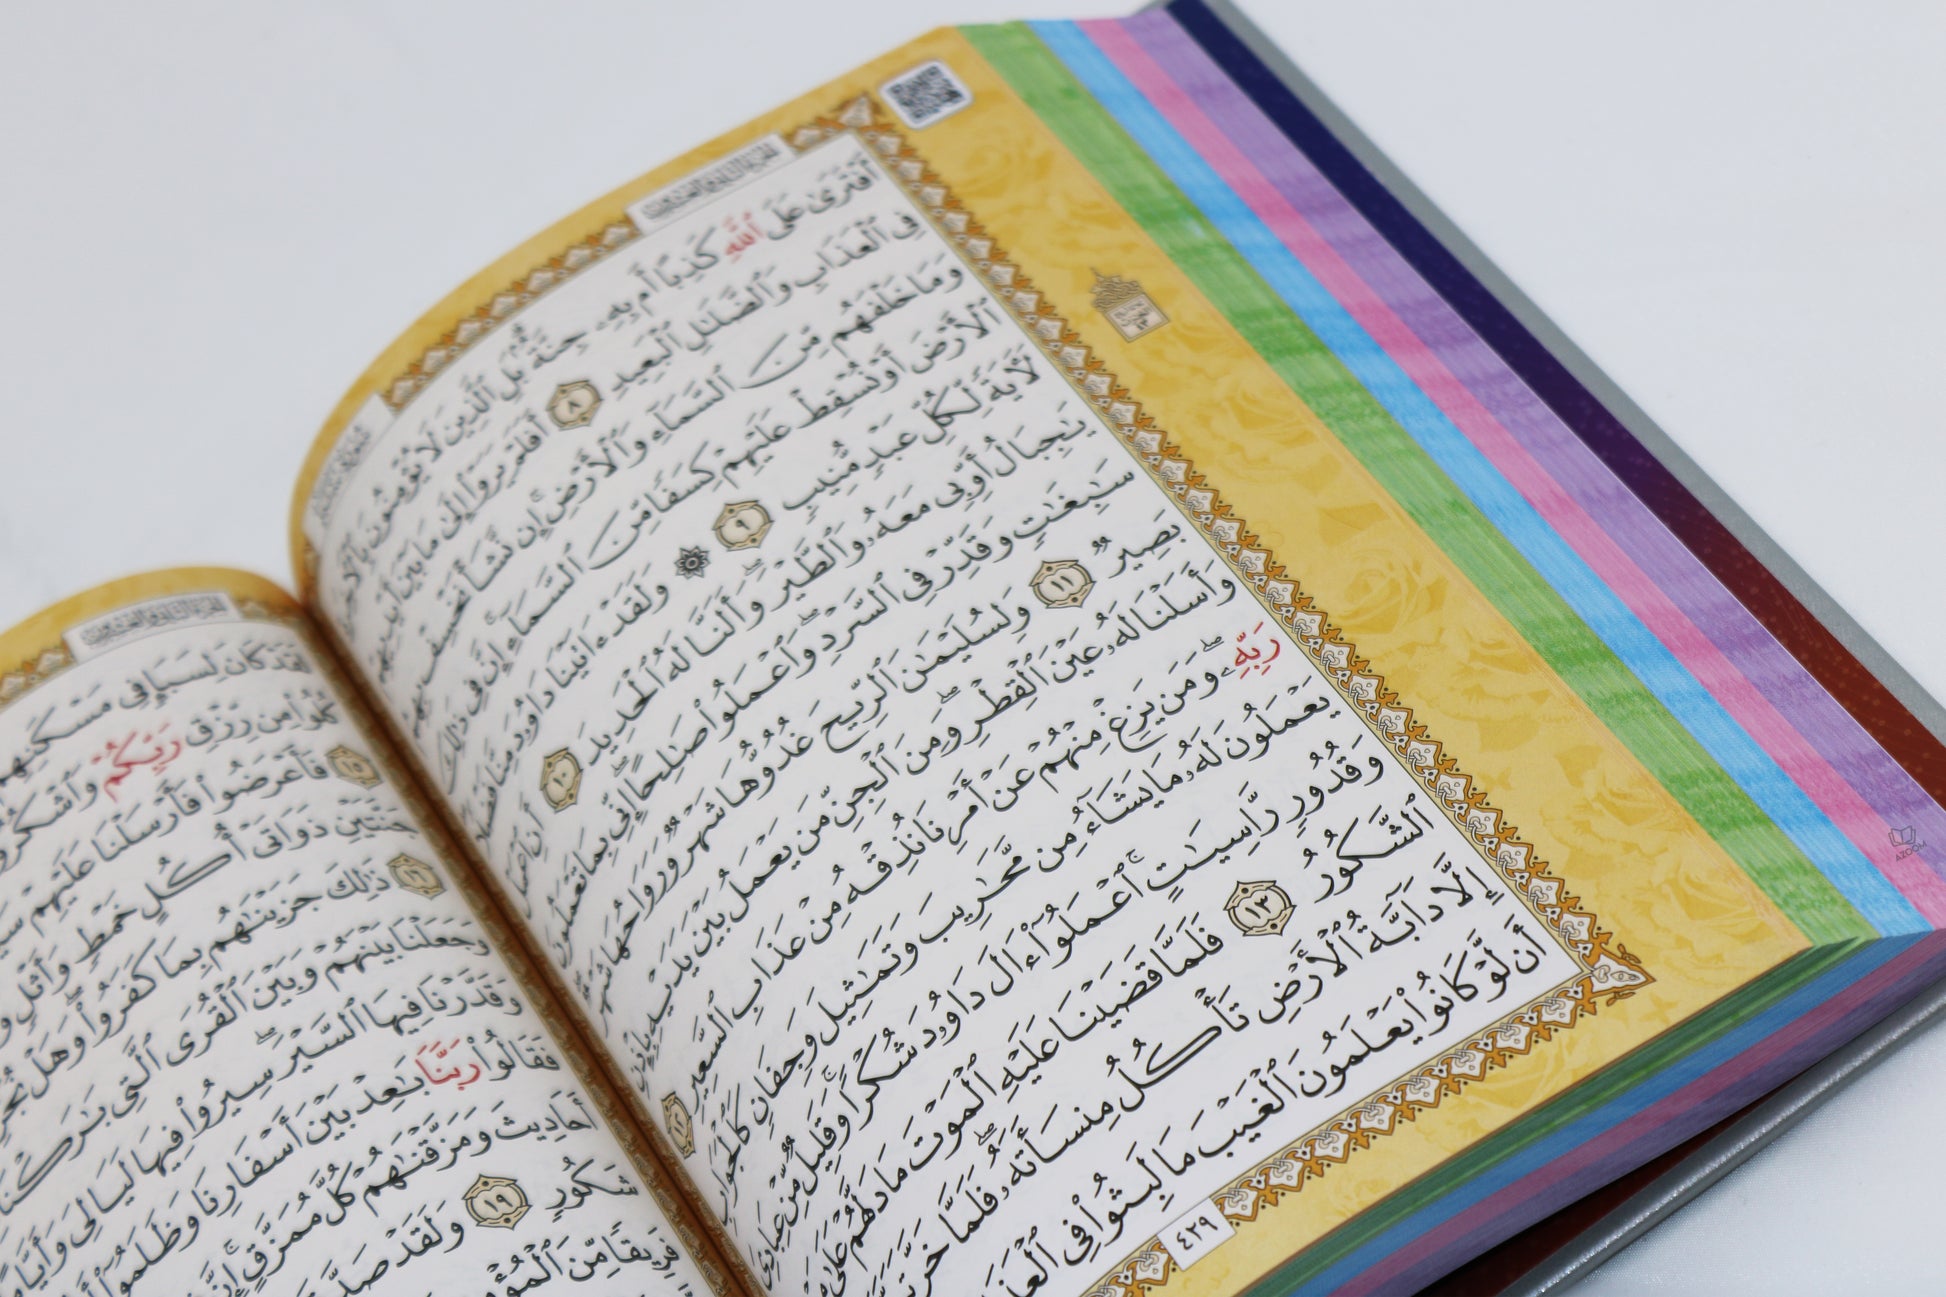 الجزء الثاني والعشرون
أَفْتَرَىٰ عَلَى ٱللَّهِ كَذِبًا أَم بِهِۦ جِنَّةٌۢ بَلِ ٱلَّذِينَ لَا يُؤْمِنُونَ بِٱلْـَٔاخِرَةِ
فِى ٱلْعَذَابِ وَٱلضَّلَـٰلِ ٱلْبَعِيدِ ٨ أَفَلَمْ يَرَوْا۟ إِلَىٰ مَا بَيْنَ أَيْدِيهِمْ
وَمَا خَلْفَهُم مِّنَ ٱلسَّمَآءِ وَٱلْأَرْضِ إِن نَّشَأْ نَخْسِفْ بِهِمُ
ٱلْأَرْضَ أَوْ نُسْقِطْ عَلَيْهِمْ كِسَفًا مِّنَ ٱلسَّمَآءِ إِنَّ فِى ذَٰلِكَ
لَـَٔايَةً لِّكُلِّ عَبْدٍ مُّنِيبٍ ٩ ۞ وَلَقَدْ ءَاتَيْنَا دَاوُۥدَ مِنَّا فَضْلًا
يَـٰجِبَالُ أَوِّبِى مَعَهُۥ وَٱلطَّيْرَ وَأَلَنَّا لَهُ ٱلْحَدِيدَ ١٠ أَنِ ٱعْمَلْ
سَـٰبِغَـٰتٍ وَقَدِّرْ فِى ٱلسَّرْدِ وَٱعْمَلُوا۟ صَـٰلِحًا إِنِّى بِمَا تَعْمَلُونَ
بَصِيرٌ ١١ وَلِسُلَيْمَـٰنَ ٱلرِّيحَ غُدُوُّهَا شَهْرٌ وَرَوَاحُهَا شَهْرٌ
وَأَسَلْنَا لَهُۥ عَيْنَ ٱلْقِطْرِ وَمِنَ ٱلْجِنِّ مَن يَعْمَلُ بَيْنَ يَدَيْهِ بِإِذْنِ
رَبِّهِۦ وَمَن يَزِغْ مِنْهُمْ عَنْ أَمْرِنَا نُذِقْهُ مِنْ عَذَابِ ٱلسَّعِيرِ ١٢
يَعْمَلُونَ لَهُۥ مَا يَشَآءُ مِن مَّحَـٰرِيبَ وَتَمَـٰثِيلَ وَجِفَانٍ كَٱلْجَوَابِ
وَقُدُورٍ رَّاسِيَـٰتٍ ٱعْمَلُوٓا۟ ءَالَ دَاوُۥدَ شُكْرًا وَقَلِيلٌ مِّنْ عِبَادِىَ
ٱلشَّكُورُ ١٣ فَلَمَّا قَضَيْنَا عَلَيْهِ ٱلْمَوْتَ مَا دَلَّهُمْ عَلَىٰ
إِلَّا دَآبَّةُ ٱلْأَرْضِ تَأْكُلُ مِنسَأَتَهُۥ فَلَمَّا خَرَّ
أَن لَّوْ كَانُوا۟ يَعْلَمُونَ ٱلْغَيْبَ مَا لَبِثُوا۟ فِى
٤٢٩
الجزء الثاني والعشرون
لَقَدْ كَانَ لِسَبَإٍ فِى مَسْكَنِهِمْ
كُلُوا۟ مِن رِّزْقِ رَبِّكُمْ وَٱشْكُرُوا۟
١٥ فَأَعْرَضُوا۟ فَأَرْسَلْنَا عَلَيْهِمْ
جَنَّتَيْنِ ذَوَاتَىْ أُكُلٍ خَمْطٍ وَأَثْلٍ
١٦ ذَٰلِكَ جَزَيْنَـٰهُم بِمَا كَفَرُوا۟ وَهَلْ
وَجَعَلْنَا بَيْنَهُمْ وَبَيْنَ ٱلْقُرَى ٱلَّتِى بَـٰرَكْنَا
وَقَدَّرْنَا فِيهَا ٱلسَّيْرَ سِيرُوا۟ فِيهَا لَيَالِىَ وَأَيَّامًا
فَقَالُوا۟ رَبَّنَا بَـٰعِدْ بَيْنَ أَسْفَارِنَا وَظَلَمُوٓا۟
أَحَادِيثَ وَمَزَّقْنَـٰهُمْ كُلَّ مُمَزَّقٍ إِنَّ
شَكُورٍ ١٩ وَلَقَدْ
فَرِيقًا مِّنَ ٱلْمُؤْمِنِينَ
AZOOM